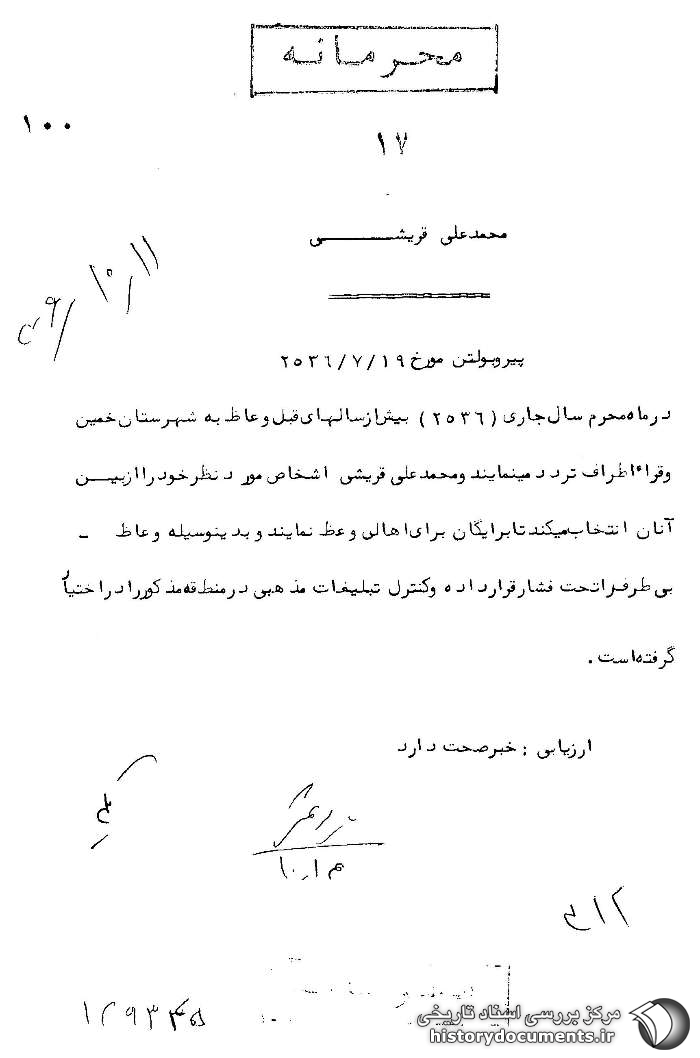 محرمانه
۱۰۰
۱۷
محمدعلی قریشـــــــی
۱۱/۱۰/
پیروبولتن مورخ ۲۵۳۶/۷/۱۹
درماه محرم سال جاری (۲۵۳۶) بیش از سالهای قبل وعاظ به شهرستان خمین
وقراء اطراف تردد مینمایند ومحمدعلی قریشی اشخاص مورد نظر خود را از بیــــن
آنان انتخاب میکند تا برایگان برای اهالی وعظ نمایند و بدینوسیله وعاظ ـ
بی طرف را تحت فشار قرار داده وکنترل تبلیغات مذهبی در منطقه مذکور را در اختیار
گرفته است .
ارزیابی : خبر صحت دارد
۳۱۲
مرکز بررسی اسناد تاریخی
historydocuments.ir